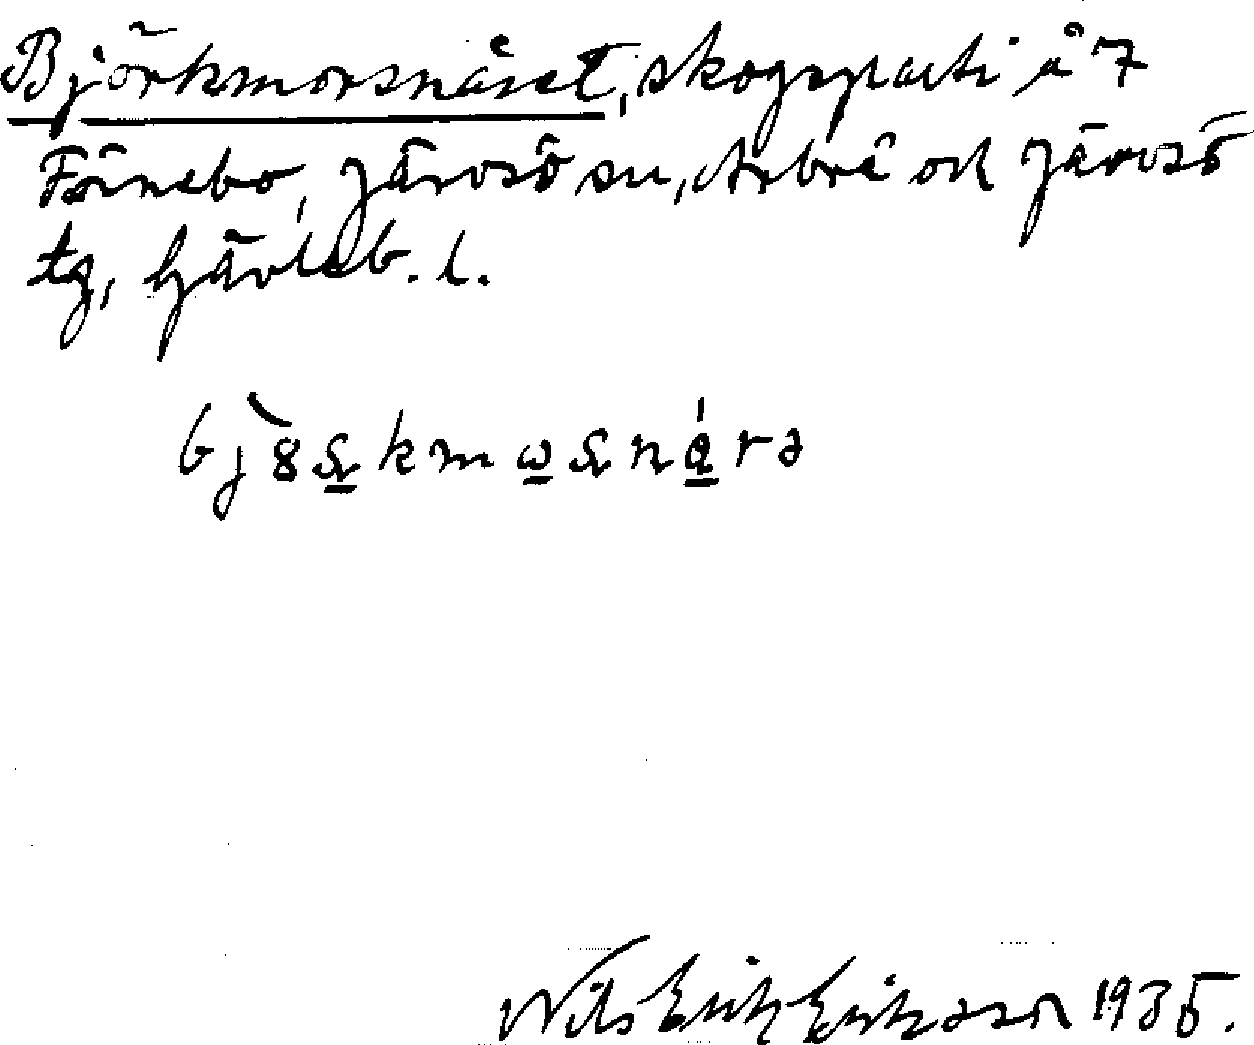 Björkmorsnäset, skogsparti å 7
Förnebo, Järvsö sn, Arbrå och Järvsö
tg, Gävleb. l.
Nils Erik Eriksson 1935.